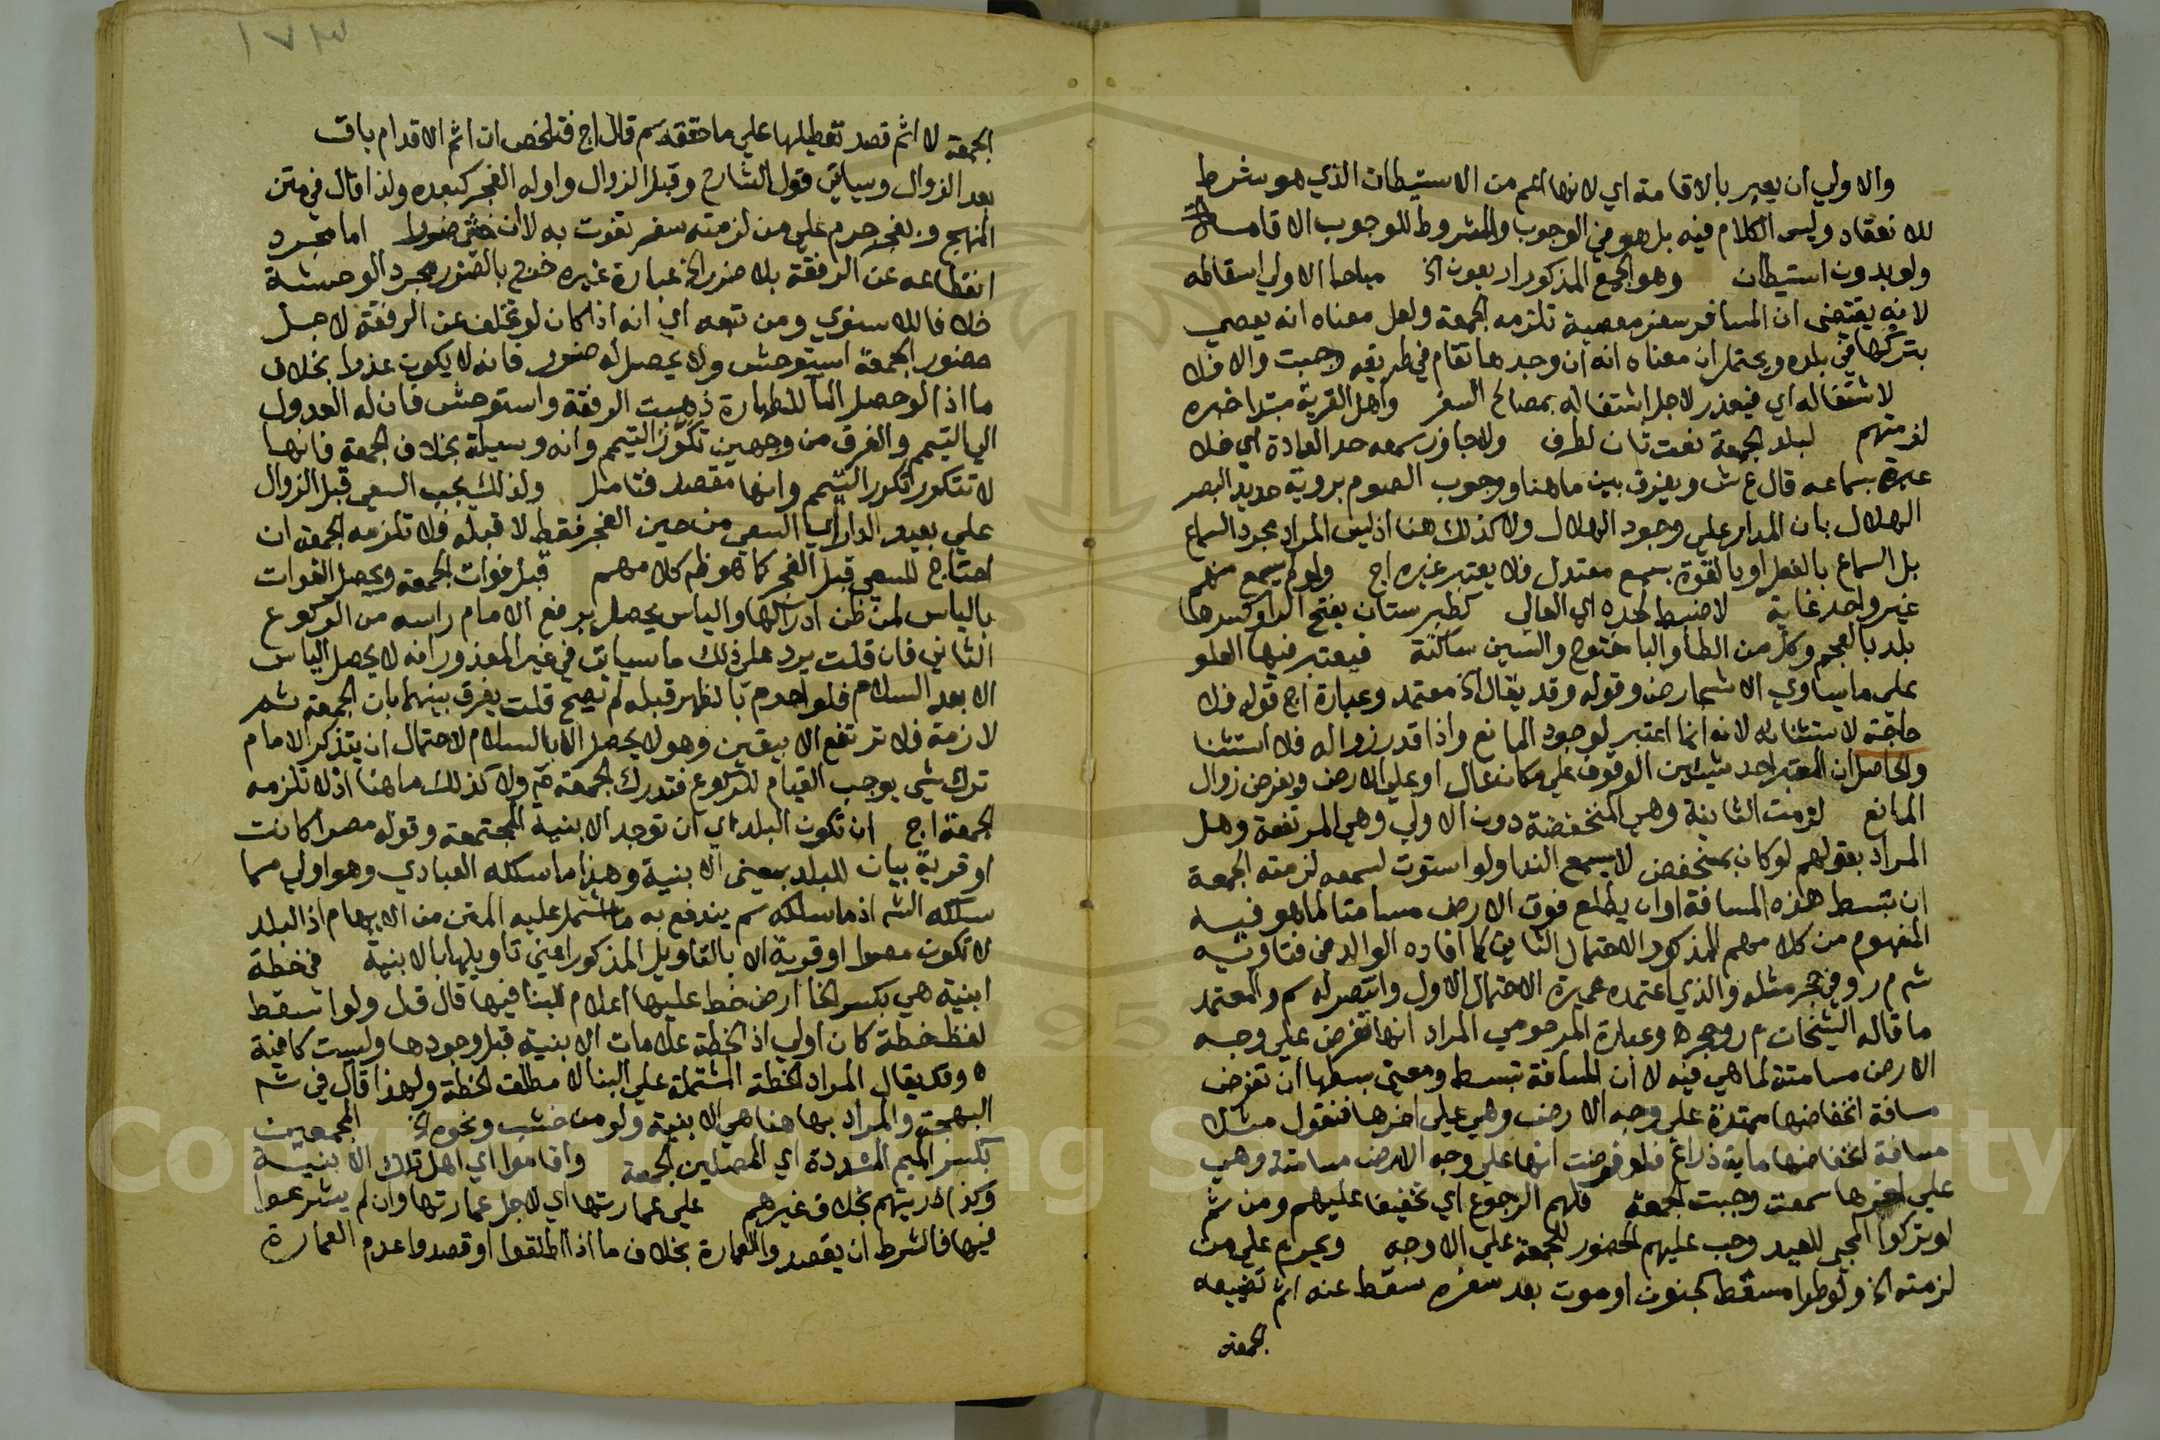 والاولي ان يعبر بالاقامة اي لانها اعم من الاستيطان الذي هو شرط
للانعقاد وليس الكلام فيه بل هو في الوجوب والمشروط للوجوب الاقامة
ولو بدون استيطان وهو الجمع المذكور اربعون الخ مباحا الاولي اسقاطه
لانه يقتضي ان المسافر سفر معصية تلزمه الجمعة ولعل معناه انه يعصي
بتركها في بلده ويحتمل ان معناه انه ان وجدها تقام في طريقه وجبت والا فلا
لاشتغاله اي فيعذر لاجل اشتغاله بمصالح السفر واهل القرية مبتدا خبره
لزمتهم لبلد الجمعة نعت ثان لطرف ولا جاوز سمعه حد العادة اي فلا
عبرة بسماعه قال ع ش ويفرق بين ما هنا ووجوب الصوم بروية حديد البصر
الهلال بان المدار علي وجود الهلال ولا كذلك هنا اذ ليس المراد مجرد السماع
بل السماع بالفعل او بالقوة بسمع معتدل فلا يعتبر غيره اج ولو لم يسمع منهم
غير واحد غاية لا ضبط لحده اي العالي كطبرستان بفتح الرا وكسرها
بلد بالعجم وكل من الطا والبا مفتوح والسين ساكنة فيعتبر فيها العلو
علي ما يساوي الاشجار ض وقوله وقد يقال الخ معتمد وعبارة اج قوله فلا
حاجة لاستثنائه لانه انما اعتبر لوجود المانع واذا قدر زواله فلا استثنا
والحاصل ان المعتبر احد شيئين الوقوف علي مكان عال او علي الارض ويفرض زوال
المانع لزمت الثانية وهي المنخفضة دون الاولي وهي المرتفعة وهل
المراد بقولهم لو كان بمنخفض لا يسمع الندا ولو استوت لسمعه لزمته الجمعة
ان تبسط هذه المسافة او ان يطلع فوق الارض مسامتا لما هو فيه
المفهوم من كلامهم المذكور الاحتمال الثاني كما افاده الوالد في فتاويه
ش م ر وفي حجر مثله والذي اعتمده عميرة الاحتمال الاول وانتصر له سم والمعتمد
ما قاله الشيخان م ر وحجر ه وعبارة المرحومي المراد انها تفرض علي وجه
الارض مسامتة لما هي فيه لا ان المسافة تبسط ومعني بسطها ان تفرض
مسافة انخفاضها ممتدة علي وجه الارض وهي علي اخرها فنقول مثلا
مسافة انخفاضها ماية ذراع فلو فرضت انها علي وجه الارض مسامتة وهي
علي اخرها سمعت وجبت الجمعة فلهم الرجوع اي تخفيفا عليهم ومن ثم
لو تركوا المجي للعيد وجب عليهم الحضور للجمعة علي الاوجه ويحرم علي من
لزمته الخ ولو طرا مسقط كجنون او موت بعد سفره سقط عنه اثم تضييعه
الجمعة
١٧٣
الجمعة لا اثم قصد تعطيلها علي ما حققه سم قال اج فتلخص ان اثم الاقدام باق
بعد الزوال وسياتي قول الشارح وقبل الزوال واوله الفجر كبعده ولذا قال في متن
المنهج وبفجر حرم علي من لزمته سفر تفوت به لا ان خشي ضررا اما مجرد
انقطاعه عن الرفقة بلا ضرر الخ عبارة غيره خرج بالضرر مجرد الوحشة
خلافا للاسنوي ومن تبعه اي انه اذا كان لو تخلف عن الرفقة لاجل
حضور الجمعة استوحش ولا يحصل له ضرر فانه لا يكون عذرا بخلاف
ما اذا لو حصل الما للطهارة ذهبت الرفقة واستوحش فان له العدول
الي التيمم والفرق من وجهين تكرر التيمم وانه وسيلة بخلاف الجمعة فانها
لا تتكرر تكرر التيمم وانها مقصد فتامل ولذلك يجب السعي قبل الزوال
علي بعيد الدار اي السعي من حين الفجر فقط لا قبله فلا تلزمه الجمعة ان
احتاج للسعي قبل الفجر كما هو ظم كلامهم قبل فوات الجمعة ويحصل الفوات
بالياس لمن ظن ادراكها والياس يحصل برفع الامام راسه من الركوع
الثاني فان قلت يرد علي ذلك ما سياتي في غير المعذور انه لا يحصل الياس
الا بعد السلام فلو احرم بالظهر قبله لم يصح قلت يفرق بينهما بان الجمعة ثم
لازمة فلا ترتفع الا بيقين وهو لا يحصل الا بالسلام لاحتمال ان يتذكر الامام
ترك شي يوجب القيام للركوع فتدرك الجمعة ولا كذلك ما هنا اذ لا تلزمه
الجمعة اج ان تكون البلد اي ان توجد الابنية المجتمعة وقوله مصرا كانت
او قرية بيان للبلد بمعني الابنية وهذا ما سلكه العبادي وهو اولي مما
سلكه الشم اذ ما سلكه سم يندفع به ما اشتمل عليه المتن من الابهام اذ البلد
لا تكون مصرا او قرية الا بالتاويل المذكور اعني تاويلها بالابنية في خطة
ابنية هي بكسر الخا ارض خط عليها اعلام للبنا فيها قال ق ل ولو اسقط
لفظ خطة كان اولي اذ الخطة علامات الابنية قبل وجودها وليست كافية
ه وقد يقال المراد الخطة المشتملة علي البنا لا مطلق الخطة ولهذا قال في شم
البهجة والمراد بها هنا هي الابنية ولو من خشب ونحوه الخ المجمعين
بكسر الميم المشددة اي المصلين الجمعة واقاموا اي اهل تلك الابنية
وكذا ذريتهم بخلاف غيرهم علي عمارتها اي لاجل عمارتها وان لم يشرعوا
فيها فالشرط ان يقصدوا العمارة بخلاف ما اذا اطلقوا او قصدوا عدم العمارة
Copyright © King Saud University